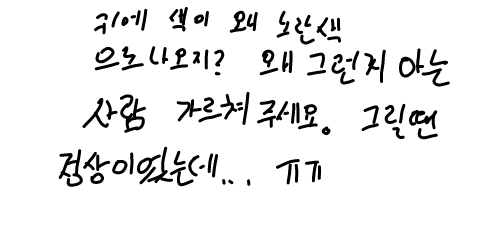 위에 색이 왜 노란색
으로나오지? 왜 그런지 아는
사람 가르쳐주세요. 그릴땐
정상이었는데... ㅠㅠ